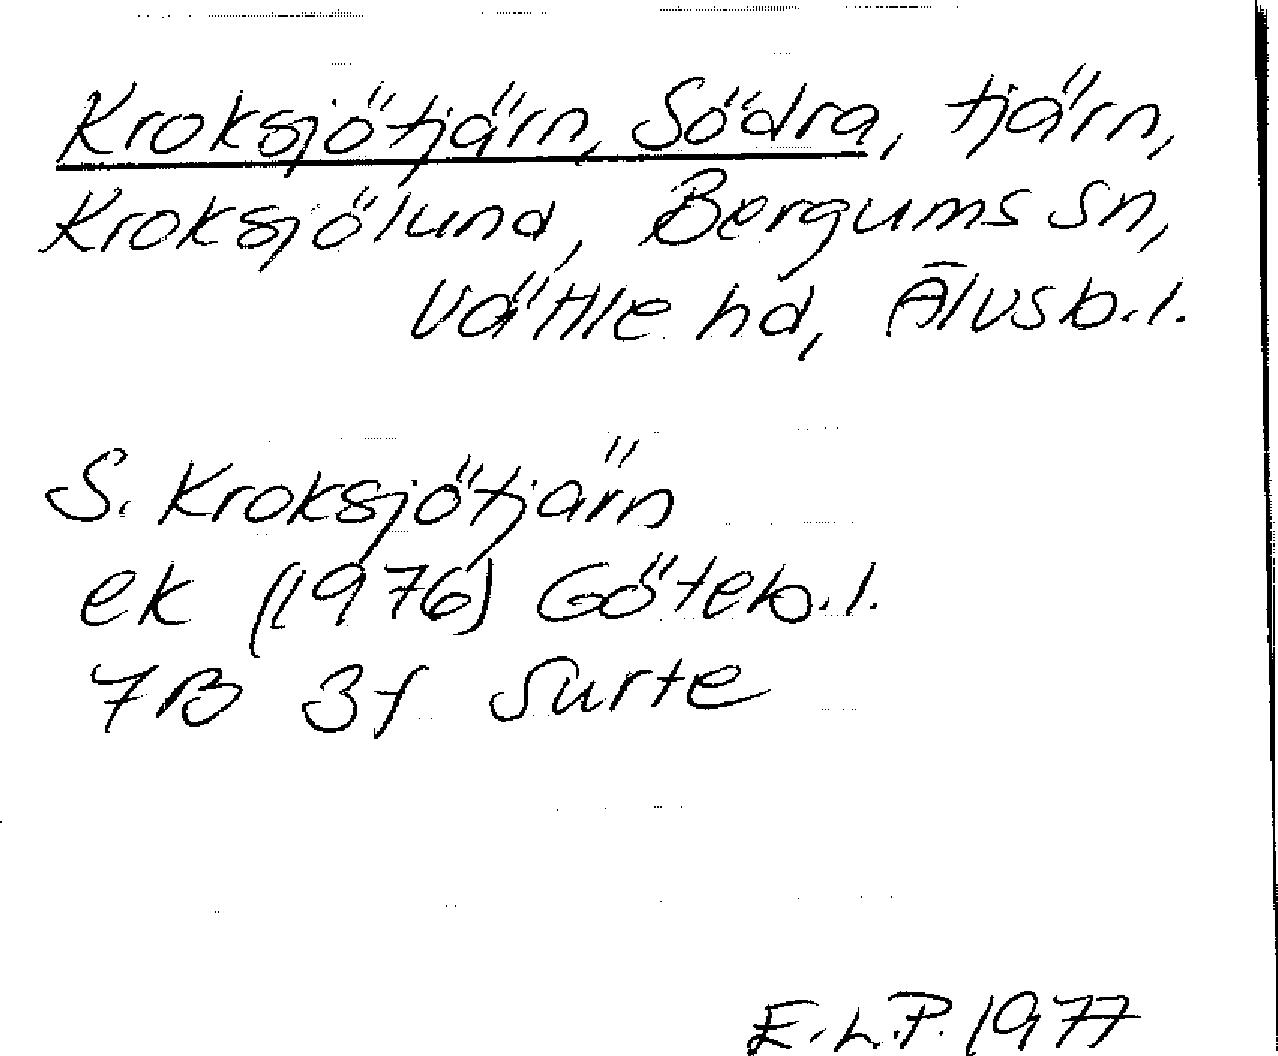 Kroksjötjärn, Södra, tjärn,
Kroksjölund, Bergums sn,
Vättle hd, Älvsb.l.
S. Kroksjötjärn
ek (1976) Göteb.l.
7B 3f Surte
E.L.P. 1977